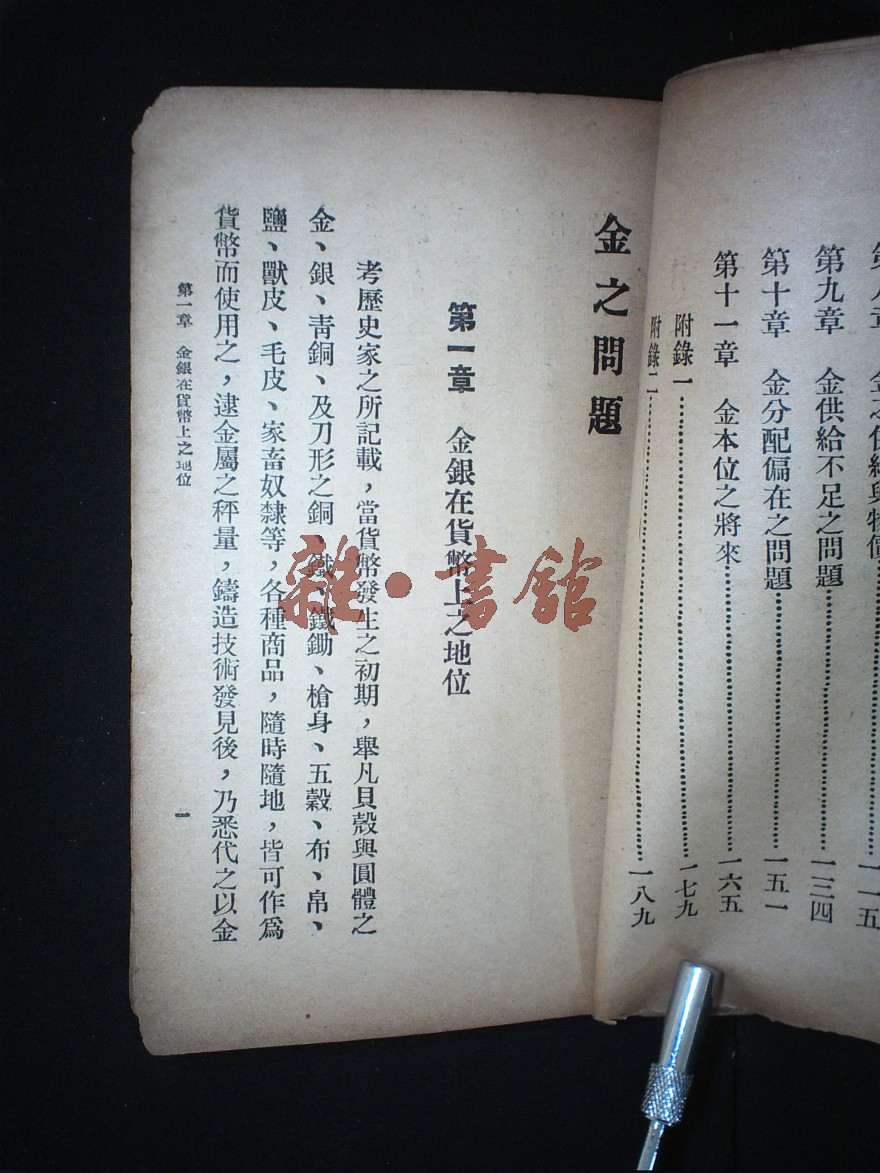 第八章 金之供給與物價 一一五
第九章 金供給不足之問題 一三四
第十章 金分配偏在之問題 一五一
第十一章 金本位之將來 一六五
附錄一 一七九
附錄二 一八九
金之問題
第一章 金銀在貨幣上之地位
考歷史家之所記載，當貨幣發生之初期，舉凡貝殼與圓體之
金、銀、青銅、及刀形之銅、鐵、鐵鋤、槍身、五穀、布、帛、
鹽、獸皮、毛皮、家畜奴隸等，各種商品，隨時隨地，皆可作爲
貨幣而使用之，逮金屬之秤量，鑄造技術發見後，乃悉代之以金
第一章 金銀在貨幣上之地位
一
雜·書館